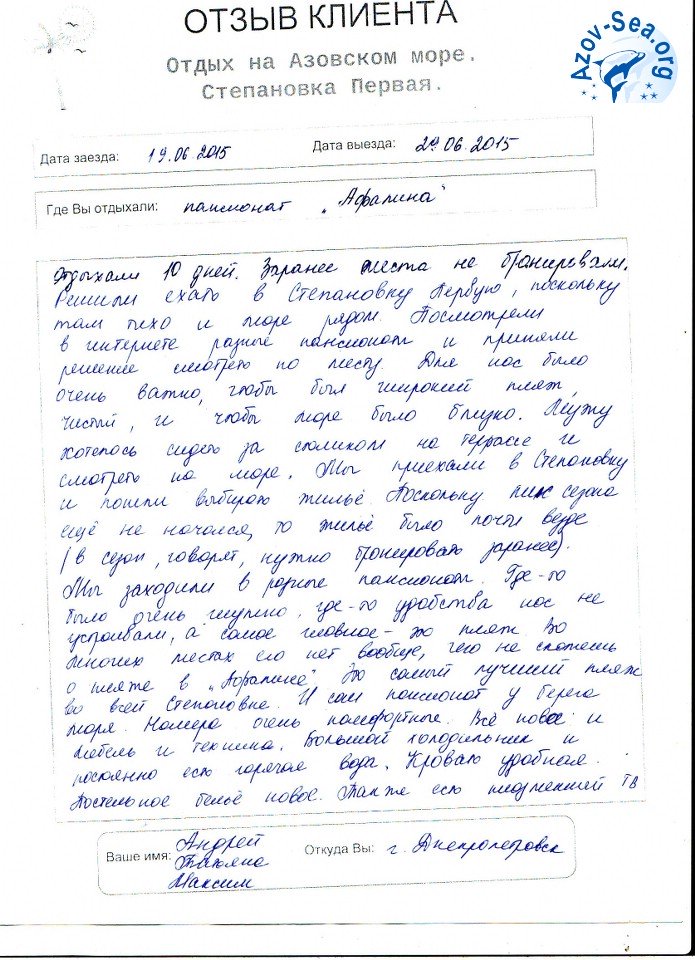 ОТЗЫВ КЛИЕНТА
Azov-Sea.org
Отдых на Азовском море.
Степановка Первая.
Дата заезда: 19.06.2015 Дата выезда: 29.06.2015
Где Вы отдыхали: пансионат "Афалина"
Отдыхали 10 дней. Заранее места не бронировали.
Решили ехать в Степановку Первую, поскольку
там тихо и море рядом. Посмотрели
в интернете разные пансионаты и приняли
решение смотреть по месту. Для нас было
очень важно, чтобы был широкий пляж,
чистый, и чтобы море было близко. Мужу
хотелось сидеть за столиком на террасе и
смотреть на море. Мы приехали в Степановку
и пошли выбирать жильё. Поскольку пик сезона
ещё не начался, то жильё было почти везде
(в сезон, говорят, нужно бронировать заранее).
Мы заходили в разные пансионаты. Где-то
было очень шумно, где-то удобства нас не
устраивали, а самое главное - это пляж. Во
многих местах его нет вообще, чего не скажешь
о пляже в "Афалине". Это самый лучший пляж
во всей Степановке. И сам пансионат у берега
моря. Номера очень комфортные. Всё новое и
мебель и техника. Большой холодильник и
постоянно есть горячая вода. Кровать удобная.
Постельное бельё новое. Также есть плазменный ТВ
Ваше имя: Андрей Откуда Вы: г. Днепропетровск
Татьяна
Максим